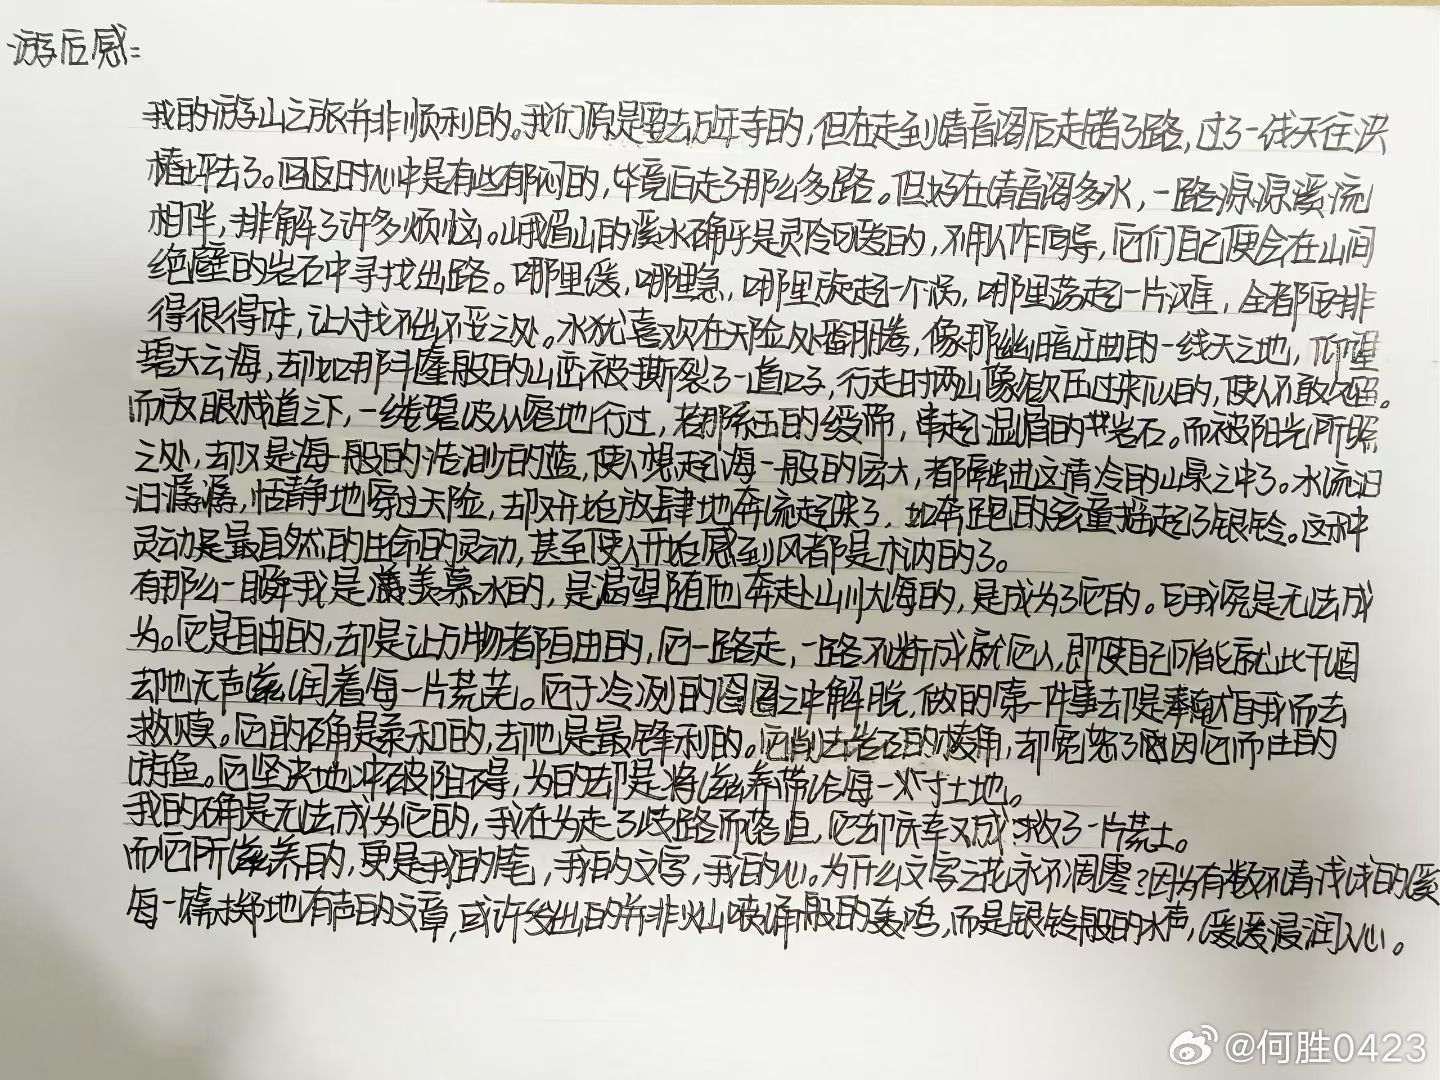 游后感：
我的游山之旅并非顺利的。我们原是要去万年寺的，但在走到清音阁后走错了路，过了一线天往洪
椿坪去了。回返时心中是有些郁闷的，毕竟白走了那么多路。但好在清音阁多水，一路源源溪流
相伴，排解了许多烦恼。峨眉山的溪水确乎是灵泛的，不用人作向导，它们自己便会在山间
绝壁的岩石中寻找出路。哪里缓，哪里急，哪里旋起一个涡，哪里荡起一片滩，全都安排
得很得体，让人找不出不妥之处。水犹喜欢在天险处翻腾，像那幽暗迂曲的一线天之地，仰望
碧天云海，却如那斗篷般的山峦被撕裂了一道口子，行走时两山像欲压过来似的，使人不敢久留。
而放眼栈道之下，一缕碧波从容地行过，若那系玉的绶带，串起温润的岩石。而被阳光所照
之处，却又是海一般的浩渺的蓝，使人想起海一般的宏大，都融进这清冷的山泉之中了。水流汩
汩潺潺，恬静地穿过天险，却又开始放肆地奔流起来了，如奔跑的孩童摇起了银铃。这种
灵动是最自然的生命的灵动，甚至使人开始感到风都是木讷的了。
有那么一瞬我是羡慕水的，是渴望随他奔赴山川大海的，是成为了它的。可我究是无法成
为。它是自由的，却是让万物都自由的，它一路走，一路不断成就他人，即使自己可能就此干涸
却也无声滋润着每一片荒芜。它于冷冽的囹圄之中解脱，做的第一件事却是奉献自我而去
救赎。它的确是柔和的，却也是最锋利的。它削去岩石的棱角，却宽恕了因它而生的
游鱼。它坚决地冲破阻碍，为的却是将滋养带给每一寸土地。
我的确是无法成为它的，我在为走了歧路而落泪，它却庆幸又成救了一片荒土。
而它所滋养的，更是我的笔，我的文字，我的心。为什么文字之花永不凋零？因为有数不清浅浅的溪
每一篇掷地有声的文章，或许发出的并非火山喷涌般的轰鸣，而是银铃般的水声，缓缓浸润人心。
@何胜0423